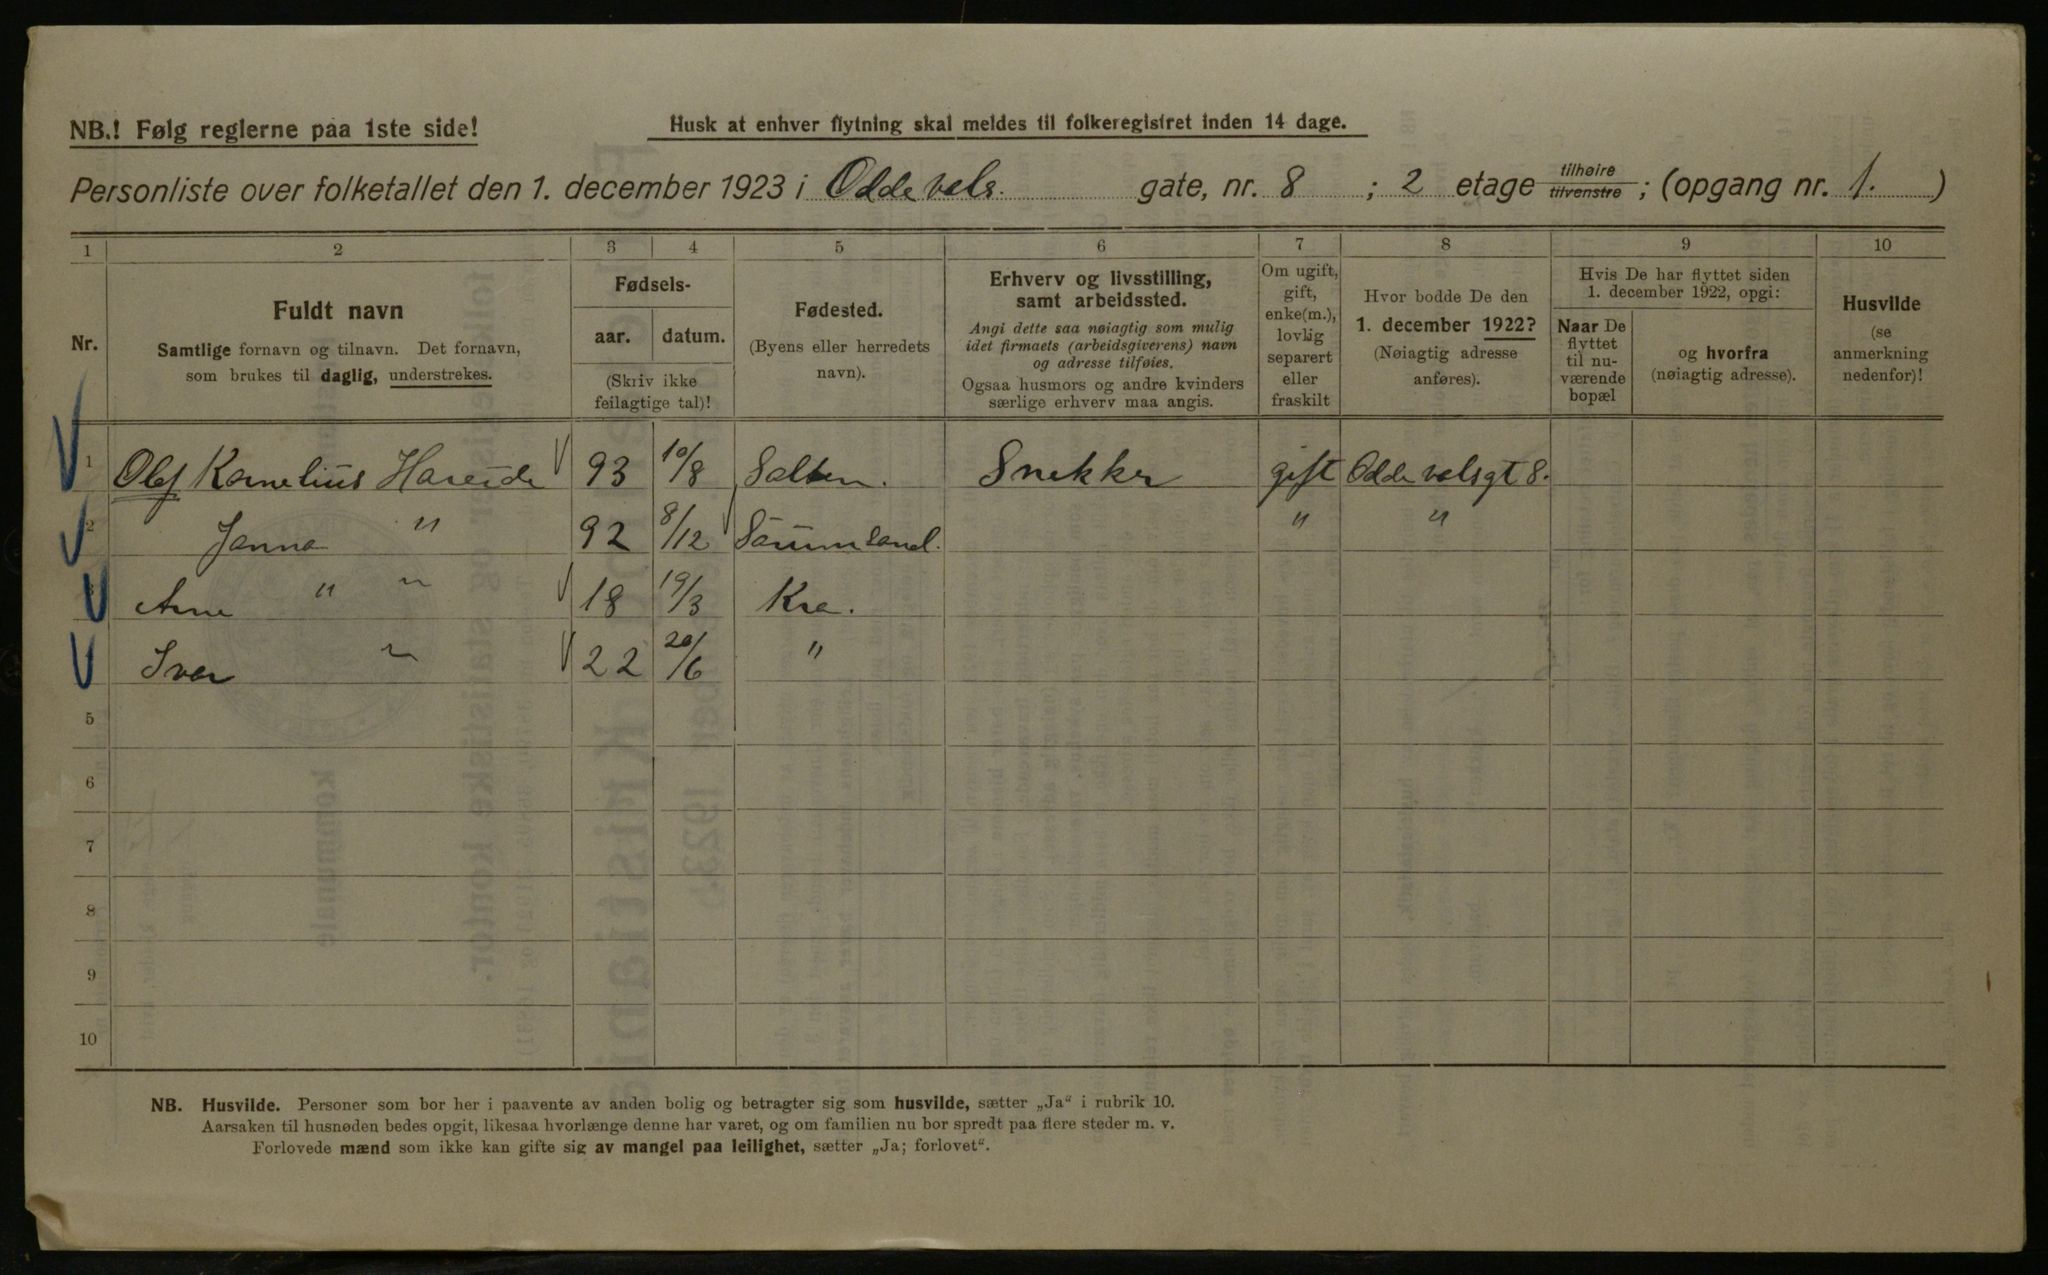 NB.! Følg reglerne paa 1ste side!
Husk at enhver flytning skal meldes til folkeregistret inden 14 dage.
Personliste over folketallet den 1. december 1923 i Oddevals. gate, nr. 8 ; 2 etage tilhøire tilvenstre ; (opgang nr. 1. )
1 2 3 4 5 6 7 8 9 10
Nr.
Fuldt navn
Samtlige fornavn og tilnavn. Det fornavn,
som brukes til daglig, understrekes.
Fødsels-
aar. datum.
(Skriv ikke
feilagtige tal)!
Fødested.
(Byens eller herredets
navn).
Erhverv og livsstilling,
samt arbeidssted.
Angi dette saa nøiagtig som mulig
idet firmaets (arbeidsgiverens) navn
og adresse tilføies.
Ogsaa husmors og andre kvinders
særlige erhverv maa angis.
Om ugift,
gift,
enke(m.),
lovlig
separert
eller
fraskilt
Hvor bodde De den
1. december 1922?
(Nøiagtig adresse
anføres).
Hvis De har flyttet siden
1. december 1922, opgi:
Naar De
flyttet
til nu-
værende
bopæl
og hvorfra
(nøiagtig adresse).
Husvilde
(se
anmerkning
nedenfor)!
1 Olef Kornelius Hareide 93 10/8 Salten. Snekker gift Oddevalsgt 8.
2 Janna " 92 8/12 Sørumsand. " "
Arne " " 18 19/3 Kra.
Ivar " 22 20/6 "
5
6
7
8
9
10
NB. Husvilde. Personer som bor her i paavente av anden bolig og betragter sig som husvilde, sætter „Ja“ i rubrik 10.
Aarsaken til husnøden bedes opgit, likesaa hvorlænge denne har varet, og om familien nu bor spredt paa flere steder m. v.
Forlovede mænd som ikke kan gifte sig av mangel paa leilighet, sætter „Ja; forlovet“.